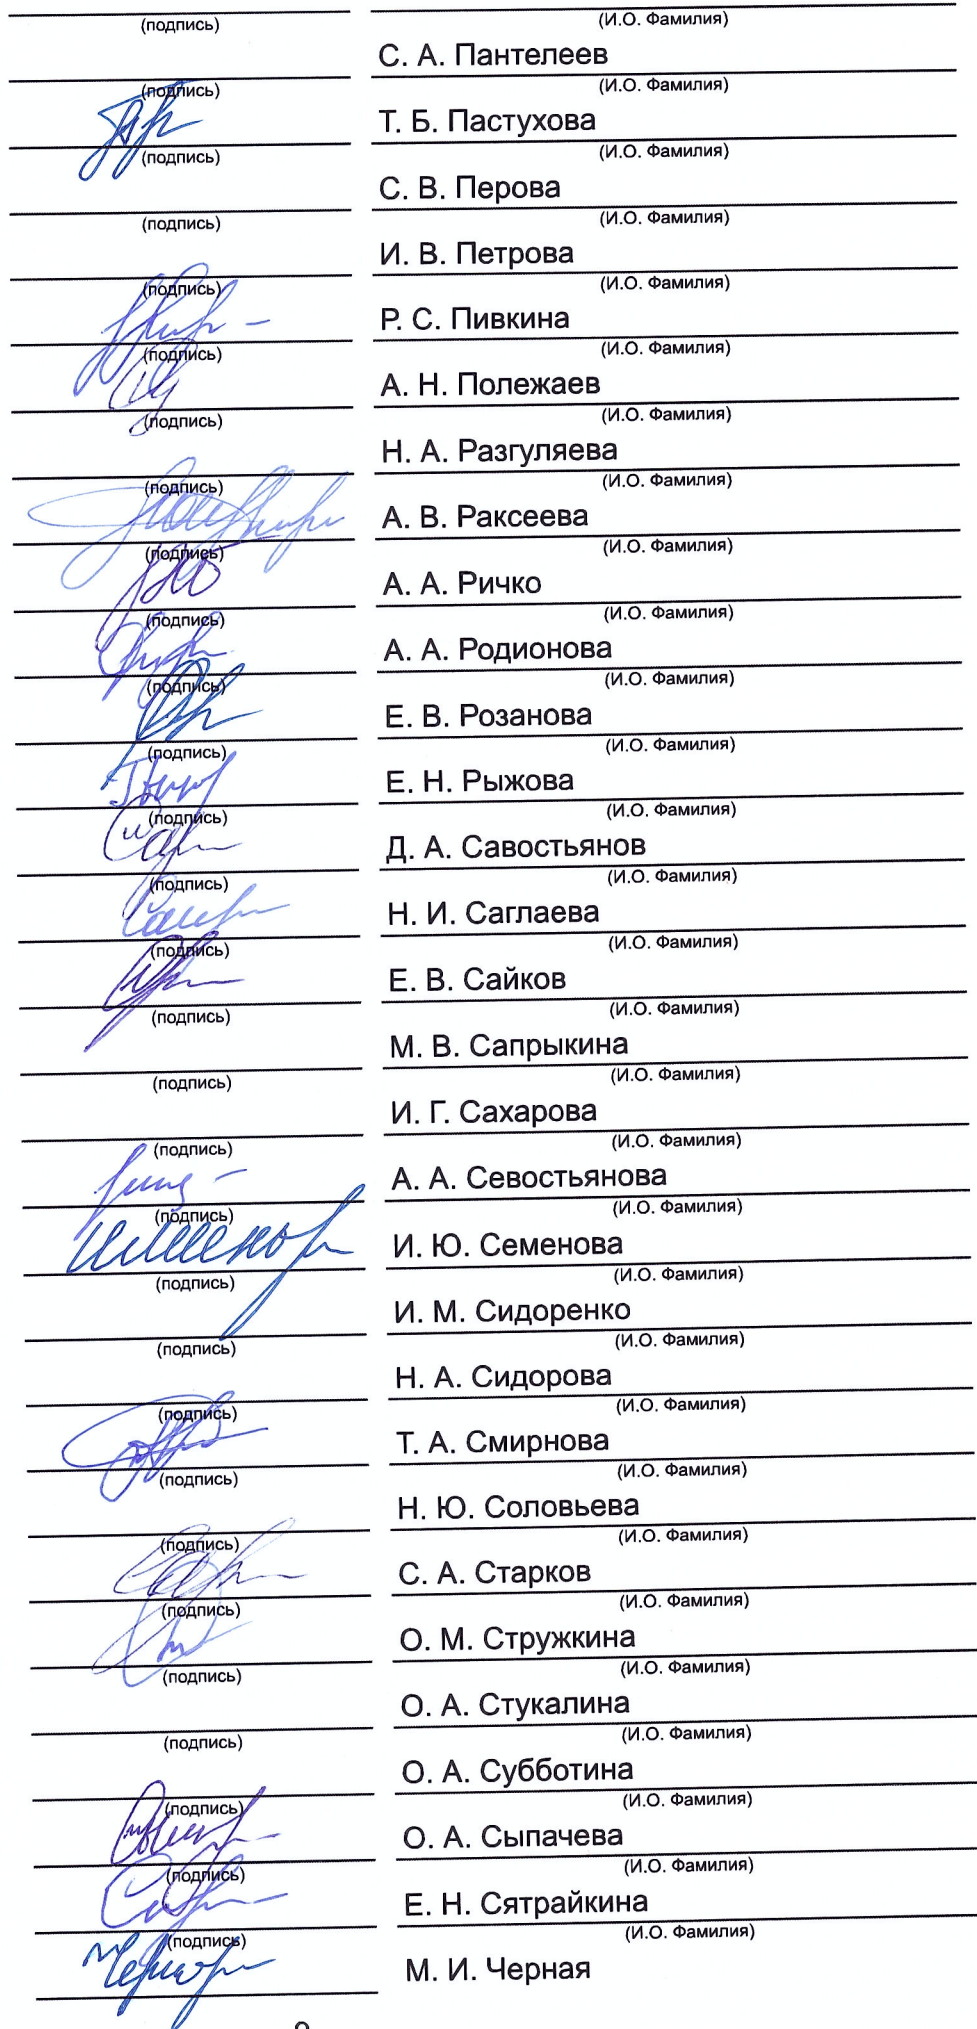 (подпись) (И.О. Фамилия)
С. А. Пантелеев
(подпись) (И.О. Фамилия)
Т. Б. Пастухова
(подпись) (И.О. Фамилия)
С. В. Перова
(подпись) (И.О. Фамилия)
И. В. Петрова
(подпись) (И.О. Фамилия)
Р. С. Пивкина
(подпись) (И.О. Фамилия)
А. Н. Полежаев
(подпись) (И.О. Фамилия)
Н. А. Разгуляева
(подпись) (И.О. Фамилия)
А. В. Раксеева
(подпись) (И.О. Фамилия)
А. А. Ричко
(подпись) (И.О. Фамилия)
А. А. Родионова
(подпись) (И.О. Фамилия)
Е. В. Розанова
(подпись) (И.О. Фамилия)
Е. Н. Рыжова
(подпись) (И.О. Фамилия)
Д. А. Савостьянов
(подпись) (И.О. Фамилия)
Н. И. Саглаева
(подпись) (И.О. Фамилия)
Е. В. Сайков
(подпись) (И.О. Фамилия)
М. В. Сапрыкина
(подпись) (И.О. Фамилия)
И. Г. Сахарова
(подпись) (И.О. Фамилия)
А. А. Севостьянова
(подпись) (И.О. Фамилия)
И. Ю. Семенова
(подпись) (И.О. Фамилия)
И. М. Сидоренко
(подпись) (И.О. Фамилия)
Н. А. Сидорова
(подпись) (И.О. Фамилия)
Т. А. Смирнова
(подпись) (И.О. Фамилия)
Н. Ю. Соловьева
(подпись) (И.О. Фамилия)
С. А. Старков
(подпись) (И.О. Фамилия)
О. М. Стружкина
(подпись) (И.О. Фамилия)
О. А. Стукалина
(подпись) (И.О. Фамилия)
О. А. Субботина
(подпись) (И.О. Фамилия)
О. А. Сыпачева
(подпись) (И.О. Фамилия)
Е. Н. Сятрайкина
(подпись) (И.О. Фамилия)
М. И. Черная